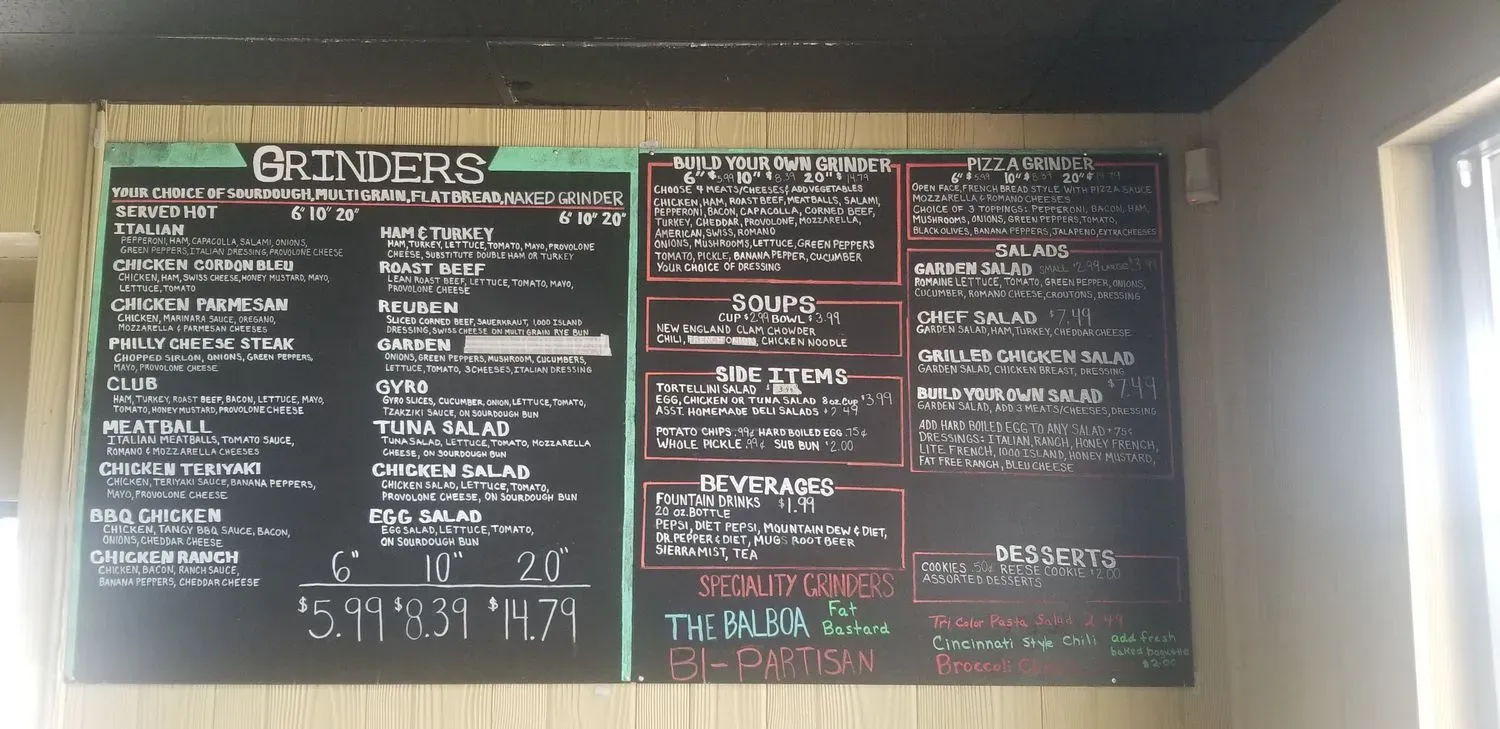 GRINDERS
YOUR CHOICE OF SOURDOUGH, MULTI GRAIN, FLATBREAD, NAKED GRINDER
SERVED HOT 6" 10" 20"
ITALIAN
PEPPERONI, HAM, CAPACOLLA, SALAMI, ONIONS,
GREEN PEPPERS, ITALIAN DRESSING, PROVOLONE CHEESE
CHICKEN CORDON BLEU
CHICKEN, HAM, SWISS CHEESE, HONEY MUSTARD, MAYO,
LETTUCE, TOMATO
CHICKEN PARMESAN
CHICKEN, MARINARA SAUCE, OREGANO,
MOZZARELLA & PARMESAN CHEESES
PHILLY CHEESE STEAK
CHOPPED SIRLOIN, ONIONS, GREEN PEPPERS,
MAYO, PROVOLONE CHEESE
CLUB
HAM, TURKEY, ROAST BEEF, BACON, LETTUCE, MAYO,
TOMATO, HONEY MUSTARD, PROVOLONE CHEESE
MEATBALL
ITALIAN MEATBALLS, TOMATO SAUCE,
ROMANO & MOZZARELLA CHEESES
CHICKEN TERIYAKI
CHICKEN, TERIYAKI SAUCE, BANANA PEPPERS,
MAYO, PROVOLONE CHEESE
BBQ CHICKEN
CHICKEN, TANGY BBQ SAUCE, BACON,
ONIONS, CHEDDAR CHEESE
CHICKEN RANCH
CHICKEN, BACON, RANCH SAUCE,
BANANA PEPPERS, CHEDDAR CHEESE
6" 10" 20"
HAM & TURKEY
HAM, TURKEY, LETTUCE, TOMATO, MAYO, PROVOLONE
CHEESE, SUBSTITUTE DOUBLE HAM OR TURKEY
ROAST BEEF
LEAN ROAST BEEF, LETTUCE, TOMATO, MAYO,
PROVOLONE CHEESE
REUBEN
SLICED CORNED BEEF, SAUERKRAUT, 1000 ISLAND
DRESSING, SWISS CHEESE ON MULTI GRAIN RYE BUN
GARDEN
ONIONS, GREEN PEPPERS, MUSHROOM, CUCUMBERS,
LETTUCE, TOMATO, 3 CHEESES, ITALIAN DRESSING
GYRO
GYRO SLICES, CUCUMBER, ONION, LETTUCE, TOMATO,
TZAKZIKI SAUCE, ON SOURDOUGH BUN
TUNA SALAD
TUNA SALAD, LETTUCE, TOMATO, MOZZARELLA
CHEESE, ON SOURDOUGH BUN
CHICKEN SALAD
CHICKEN SALAD, LETTUCE, TOMATO,
PROVOLONE CHEESE, ON SOURDOUGH BUN
EGG SALAD
EGG SALAD, LETTUCE, TOMATO,
ON SOURDOUGH BUN
6" 10" 20"
$5.99 $8.39 $14.79
BUILD YOUR OWN GRINDER
6" $5.99 10" $8.39 20" $14.79
CHOOSE 4 MEATS/CHEESES & ADD VEGETABLES
CHICKEN, HAM, ROAST BEEF, MEATBALLS, SALAMI,
PEPPERONI, BACON, CAPACOLLA, CORNED BEEF,
TURKEY, CHEDDAR, PROVOLONE, MOZZARELLA,
AMERICAN, SWISS, ROMANO
ONIONS, MUSHROOMS, LETTUCE, GREEN PEPPERS
TOMATO, PICKLE, BANANA PEPPER, CUCUMBER
YOUR CHOICE OF DRESSING
SOUPS
CUP $2.99 BOWL $3.99
NEW ENGLAND CLAM CHOWDER
CHILI, FRENCH ONION, CHICKEN NOODLE
SIDE ITEMS
TORTELLINI SALAD $3.49
EGG, CHICKEN OR TUNA SALAD 8 oz CUP $3.99
ASST. HOMEMADE DELI SALADS $2.49
POTATO CHIPS .99¢ HARD BOILED EGG .75¢
WHOLE PICKLE .99¢ SUB BUN $2.00
BEVERAGES
FOUNTAIN DRINKS $1.99
20 OZ. BOTTLE
PEPSI, DIET PEPSI, MOUNTAIN DEW & DIET,
DR. PEPPER & DIET, MUGS ROOT BEER
SIERRA MIST, TEA
SPECIALITY GRINDERS
THE BALBOA
Fat
Bastard
BI-PARTISAN
PIZZA GRINDER
6" $5.99 10" $8.39 20" $14.79
OPEN FACE, FRENCH BREAD STYLE WITH PIZZA SAUCE
MOZZARELLA & ROMANO CHEESES
CHOICE OF 3 TOPPINGS: PEPPERONI, BACON, HAM,
MUSHROOMS, ONIONS, GREEN PEPPERS, TOMATO,
BLACK OLIVES, BANANA PEPPERS, JALAPENO, EXTRA CHEESES
SALADS
GARDEN SALAD SMALL $2.99 LARGE $3.99
ROMAINE LETTUCE, TOMATO, GREEN PEPPER, ONIONS,
CUCUMBER, ROMANO CHEESE, CROUTONS, DRESSING
CHEF SALAD $7.49
GARDEN SALAD, HAM, TURKEY, CHEDDAR CHEESE
GRILLED CHICKEN SALAD
GARDEN SALAD, CHICKEN BREAST, DRESSING
BUILD YOUR OWN SALAD $7.49
GARDEN SALAD, ADD 3 MEATS/CHEESES, DRESSING
ADD HARD BOILED EGG TO ANY SALAD + 75¢
DRESSINGS: ITALIAN, RANCH, HONEY FRENCH,
LITE FRENCH, 1000 ISLAND, HONEY MUSTARD,
FAT FREE RANCH, BLEU CHEESE
DESSERTS
COOKIES .50¢ REESE COOKIE $2.00
ASSORTED DESSERTS
Tri Color Pasta Salad 2.49
Cincinnati Style Chili
Broccoli
add fresh
baked baguette
$2.00